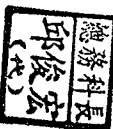 總務科長
邱俊宏
(代)